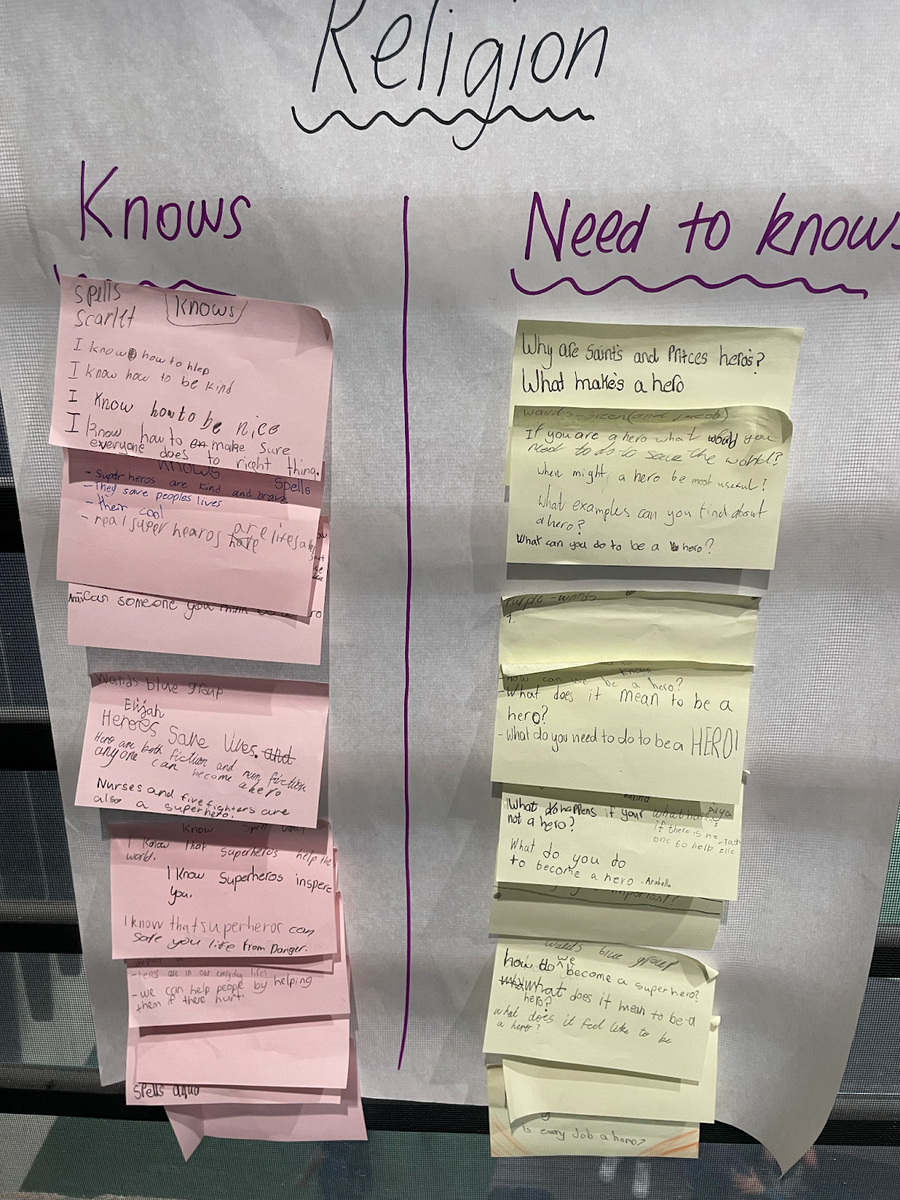 Religion
Knows
spells
Knows
Scarlett
I know how to hlep
I know how to be kind
I know how to be nice
I know how to make sure
everyone does to right thing.
Knows
Spells
- Super heros are kind and brave
- They save peoples lives
- their cool
- real super hearos are
Can someone you
Wands blue group
Elijah
Heroes Save lives.
Hero are both fiction and non fiction
anyone can become a hero
Nurses and firefighters are
also a superhero.
Know
I know that superheros help the
world.
I know Superheros inspere
you.
I know that superheros can
safe you life from Danger.
- we can help people by helping
them if there hurt.
spells aqua
Need to knows
Why are Saints and Princes hero's?
What makes a hero
If you are a hero what would you
need to do to save the world?
when might a hero be most useful?
What examples can you find about
a hero?
What can you do to be a hero?
Purple - wands
1.
how can we be a hero?
- What does it mean to be a
hero?
- What do you need to do to be a HERO!
What happens if your
not a hero?
if there is no
one to help
What do you do
to become a hero - Arabella
important?
wands blue group
how do we become a superhero?
what does it mean to be a
hero?
what does it feel like to be
a hero?
is every Job a hero?